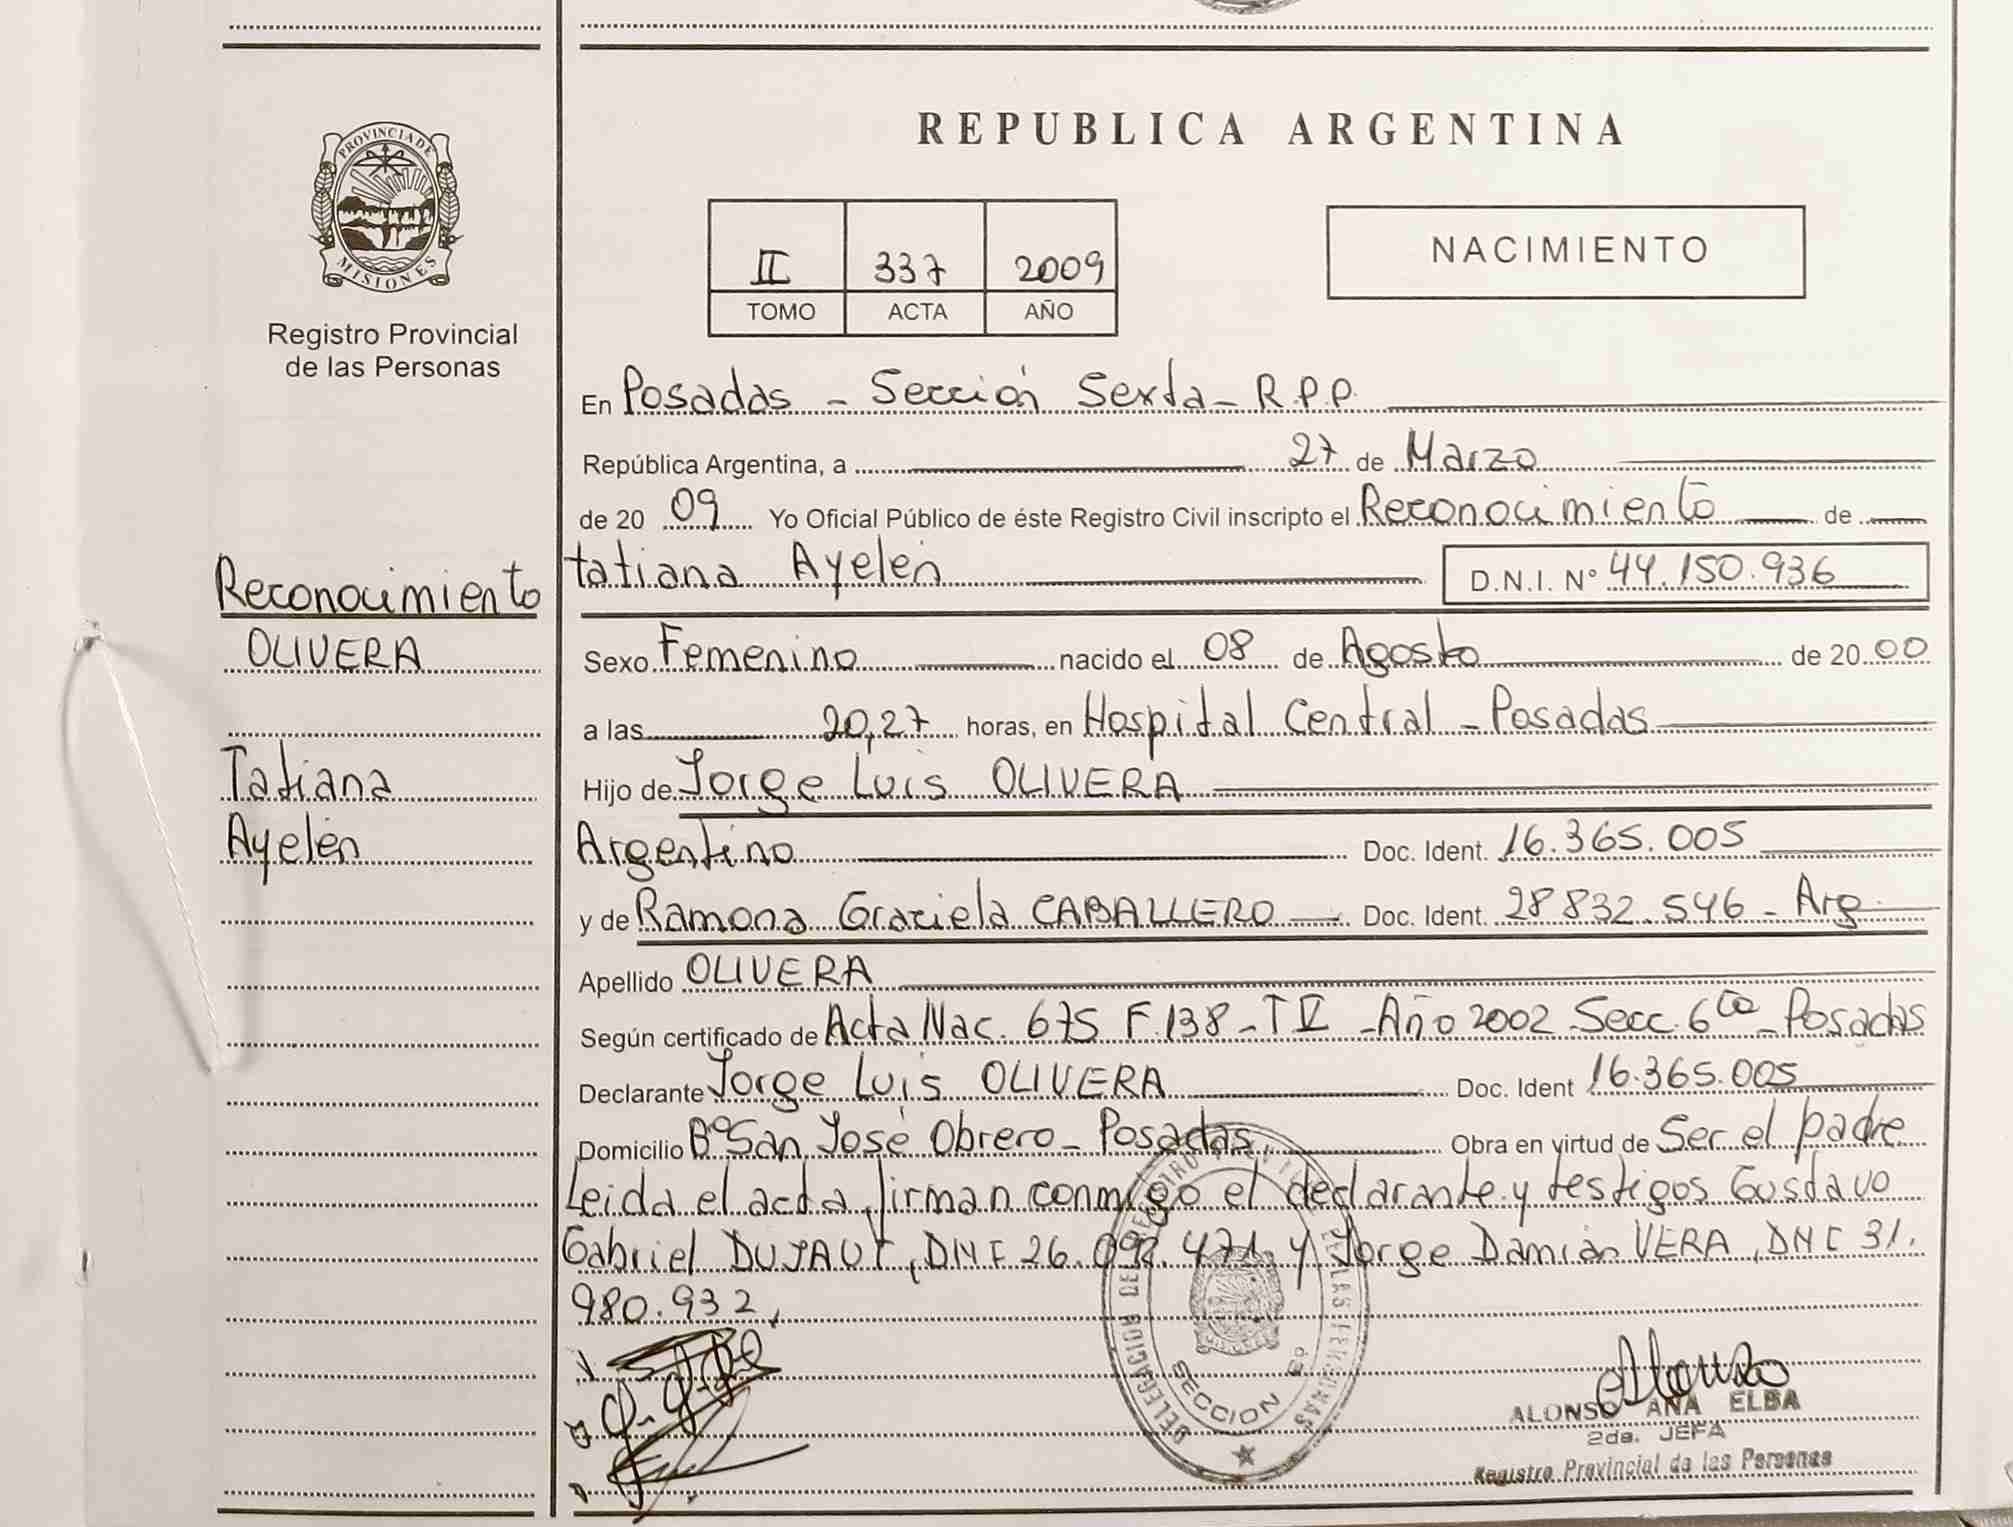 REPUBLICA ARGENTINA
PROVINCIA DE
MISIONES
Registro Provincial
de las Personas
II 337 2009
TOMO ACTA AÑO
NACIMIENTO
En Posadas - Sección Sexta - R.P.P.
República Argentina, a 27 de Marzo
de 20 09 Yo Oficial Público de éste Registro Civil inscripto el Reconocimiento de
tatiana Ayelén D.N.I. Nº 44.150.936
Reconocimiento
OLIVERA
Tatiana
Ayelén
Sexo Femenino nacido el 08 de Agosto de 20 00
a las 20,27 horas, en Hospital Central - Posadas
Hijo de Jorge Luis OLIVERA
Argentino Doc. Ident. 16.365.005
y de Ramona Graciela CABALLERO Doc. Ident. 28832.546 - Arg.
Apellido OLIVERA
Según certificado de Acta Nac. 675 F.138 - T - Año 2002 Secc. 6ta - Posadas
Declarante Jorge Luis OLIVERA Doc. Ident 16.365.005
Domicilio Bº San José Obrero - Posadas Obra en virtud de Ser el padre
Leida el acta, firman conmigo el declarante y testigos Gustavo
Gabriel DNI 26. 471. y Jorge Damián VERA, DNI 31.
980.932,
SECCION 6º
ALONSO ANA ELBA
2da. JEFA
Registro Provincial de las Personas